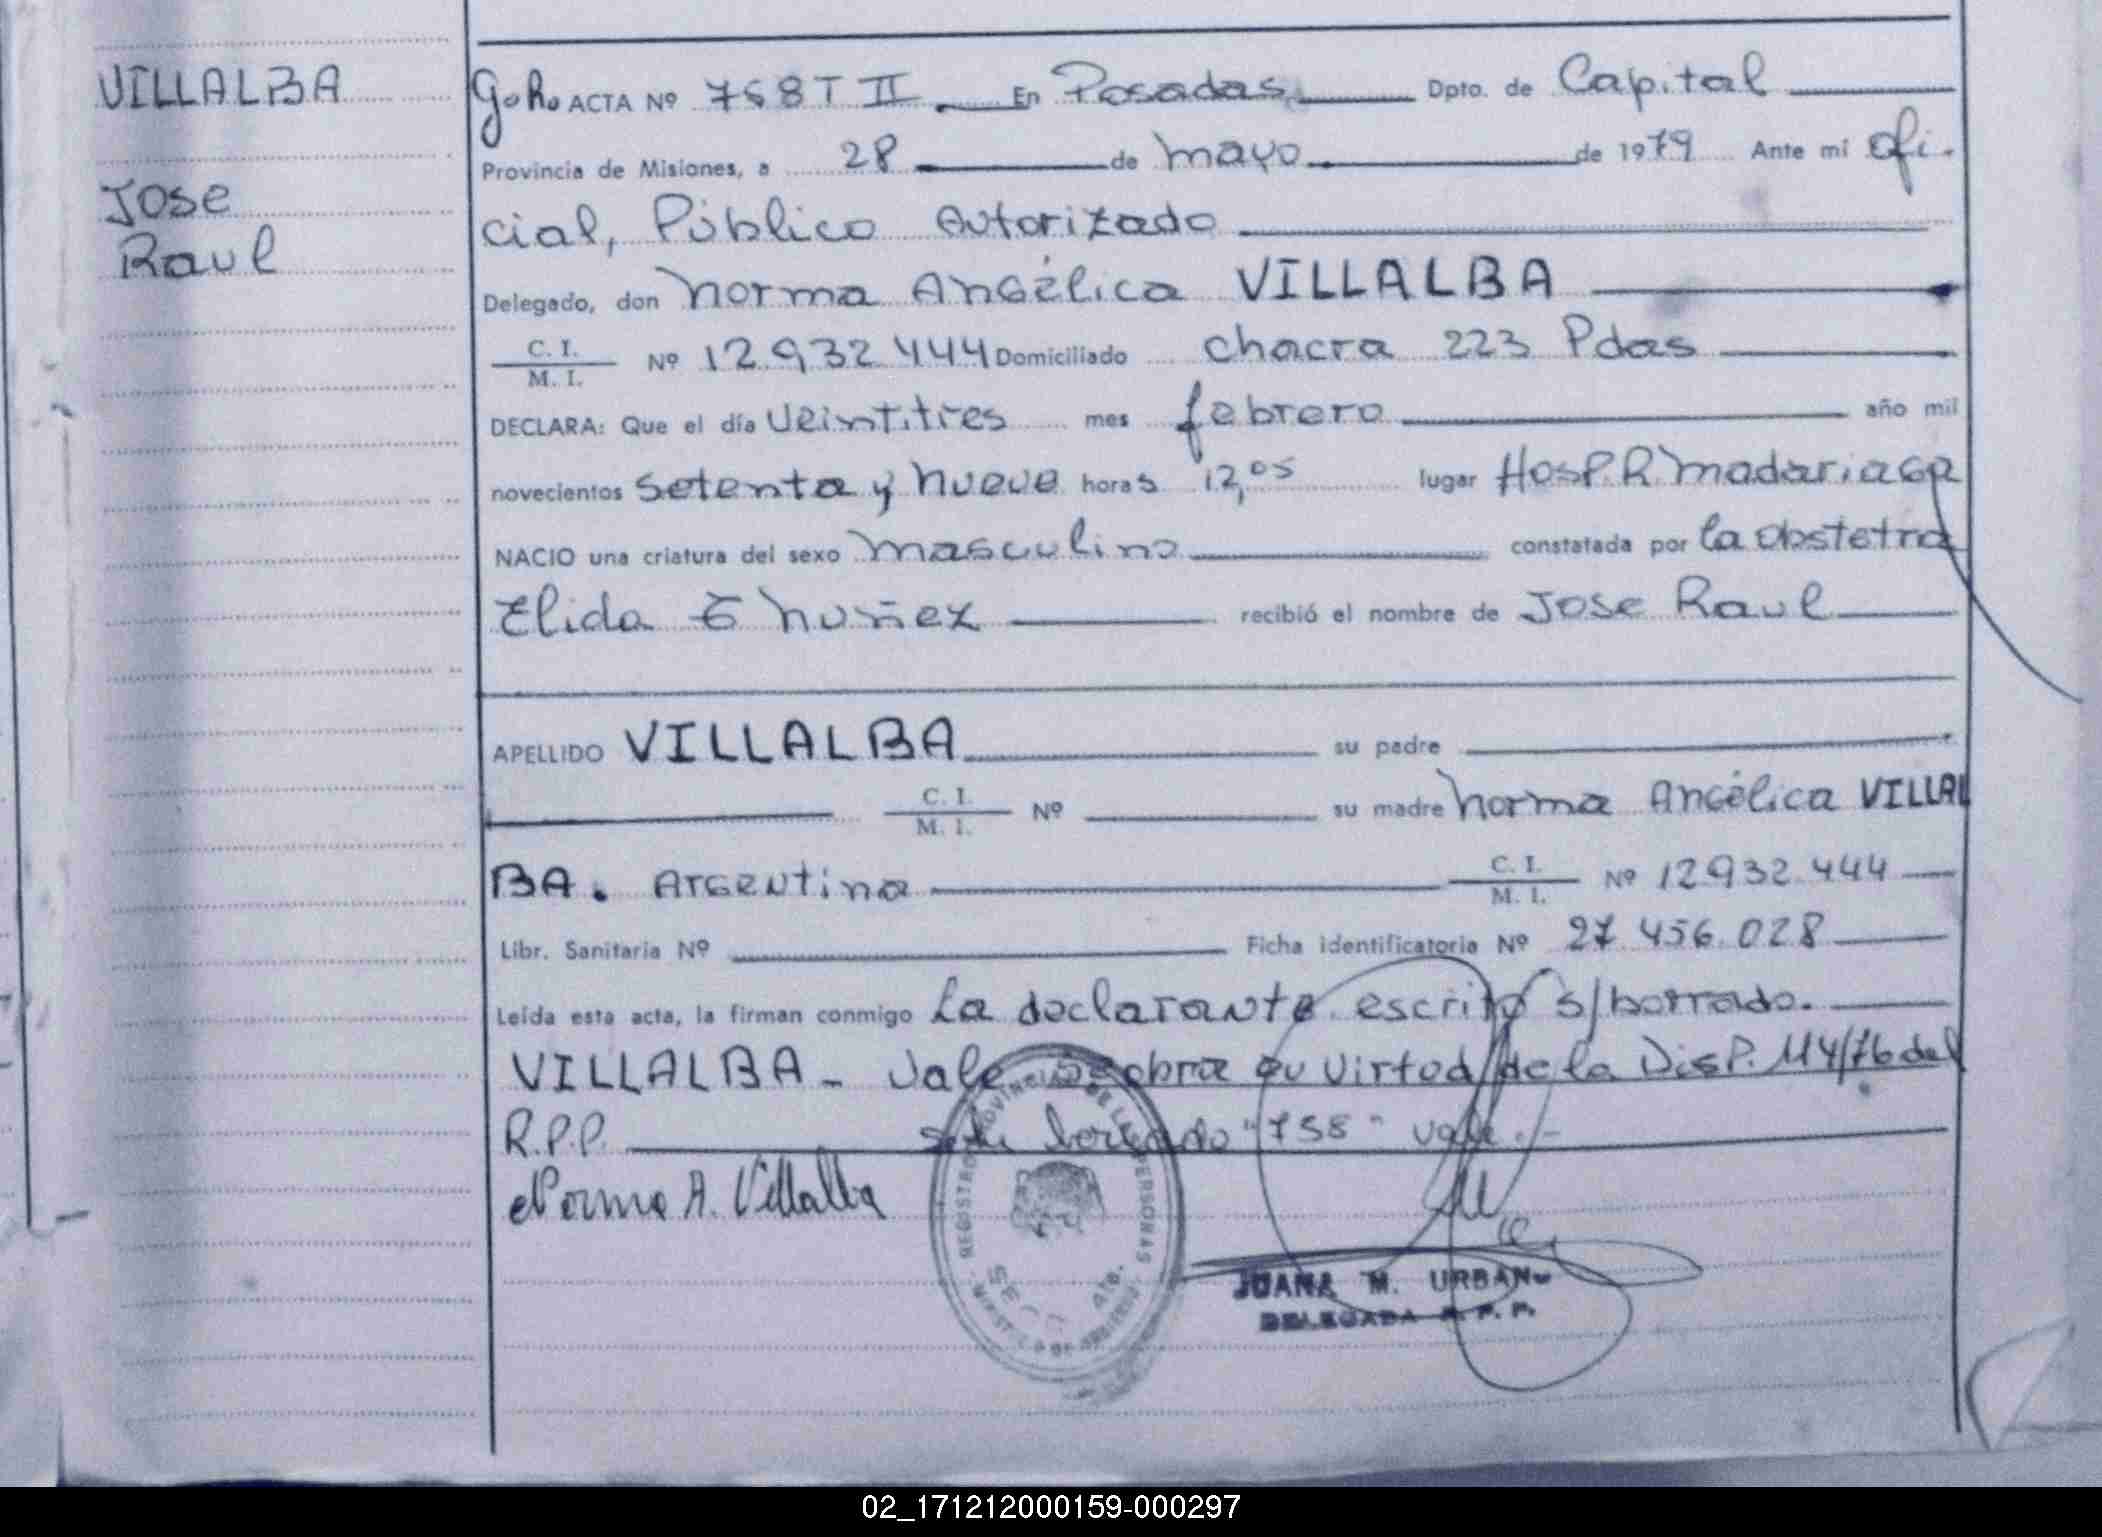 VILLALBA
Jose
Raul
ACTA Nº 758 T II. En Posadas Dpto. de Capital
Provincia de Misiones, a 28 de mayo de 1979 Ante mi ofi-
cial, Público Autorizado
Delegado, don Norma Angélica VILLALBA
C. I.
M. I. Nº 12.932.444 Domiciliado chacra 223 Pdas
DECLARA: Que el día veintitres mes febrero año mil
novecientos setenta y nueve horas 12,05 lugar Hosp. R Madariaga
NACIO una criatura del sexo masculino constatada por la obstetra
Elida E Nuñez recibió el nombre de Jose Raul
APELLIDO VILLALBA su padre
C. I.
M. I. Nº su madre Norma Angélica VILLAL
BA. Argentina C. I.
M. I. Nº 12932.444
Libr. Sanitaria Nº Ficha identificatoria Nº 27.456.028
Leída esta acta, la firman conmigo La declarante. escrito s/borrado.
VILLALBA - Vale se obra en virtud de la Disp. 114/76 del
R.P.P. borrado "758" vale.-
Norma A. Villalba
REGISTRO PROVINCIAL DE LAS PERSONAS
JUANA M. URBAN
DELEGADA R. P. P.
02_171212000159-000297